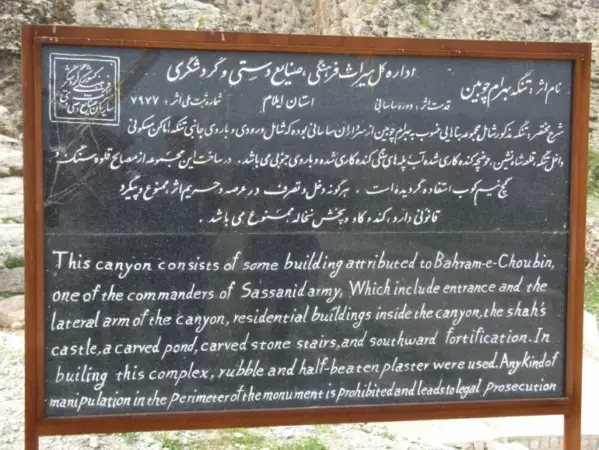 اداره کل میراث فرهنگی، صنایع دستی و گردشگری
نام اثر: تنگه بهرام چوبین
قدمت اثر: دوره ساسانی
استان ایلام
شماره ثبت ملی اثر: ۷۹۷۷
شرح مختصر: تنگه مذکور شامل مجموعه بناهایی منسوب به بهرام چوبین از سرداران ساسانی بوده که شامل ورودی و باروی جانبی تنگه، اماکن مسکونی
داخل تنگه، قلعه شاه نشین، حوضچه کنده کاری شده آب پله های سنگی کنده کاری شده و باروی جنوبی می باشد. در ساخت این مجموعه از مصالح قلوه سنگ و
گچ نیم کوب استفاده گردیده است. هرگونه دخل و تصرف در عرصه و حریم اثر ممنوع و پیگرد
قانونی دارد، کند و کاو و پخش نخاله ممنوع می باشد.
This canyon consists of some building attributed to Bahram-e-Choubin,
one of the commanders of Sassanid army, Which include entrance and the
lateral arm of the canyon, residential buildings inside the canyon, the shah's
castle, a carved pond, carved stone stairs, and southward fortification. In
builing this complex, rubble and half-beaten plaster were used. Any Kind of
manipulation in the Perimeter of the monument is prohibited and leads to legal prosecution